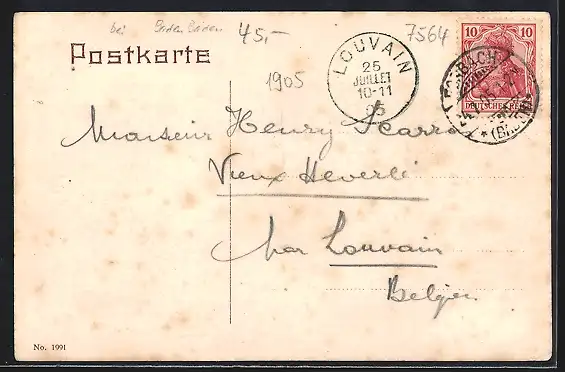 bei Baden Baden 45,- 7564
Postkarte
1905
LOUVAIN
25
JUILLET
10-11
05
10 10
DEUTSCHES REICH
FORBACH
* (BADEN) *
Monsieur Henry
Vieux Heverlé
par Louvain
Belgien
No. 1991